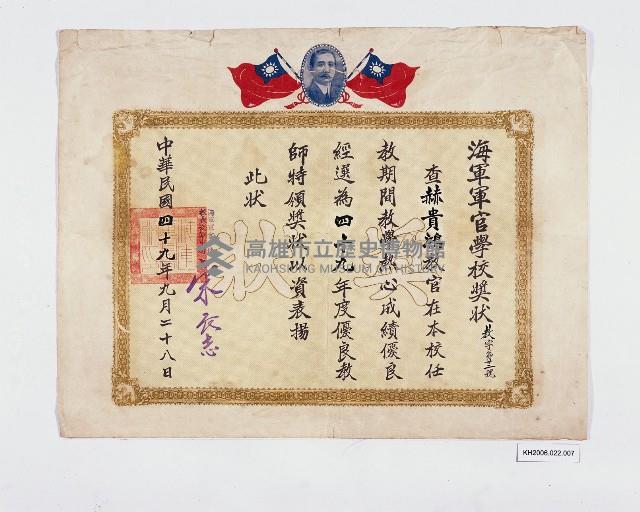 海軍軍官學校獎狀
教字第十二號
查赫貴鴻教官在本校任
教期間教學熱心成績優良
經選為四十九年度優良教
師特頒獎狀以資表揚
此狀
中華民國四十九年九月二十八日
獎狀
高雄市立歷史博物館
KAOHSIUNG MUSEUM OF HISTORY
KH2006.022.007